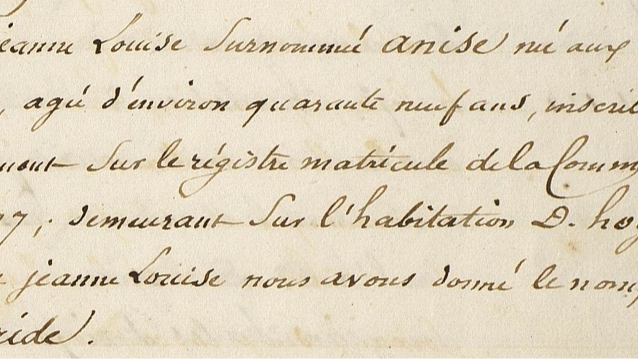 jeanne Louise Surnommé anise né aux
, agé d'environ quarante neuf ans, inscrit
ment Sur le régistre matricule de la Comm
7, demeurant Sur l'habitation D. hoy
jeanne Louise nous avons donné le nom
ride).